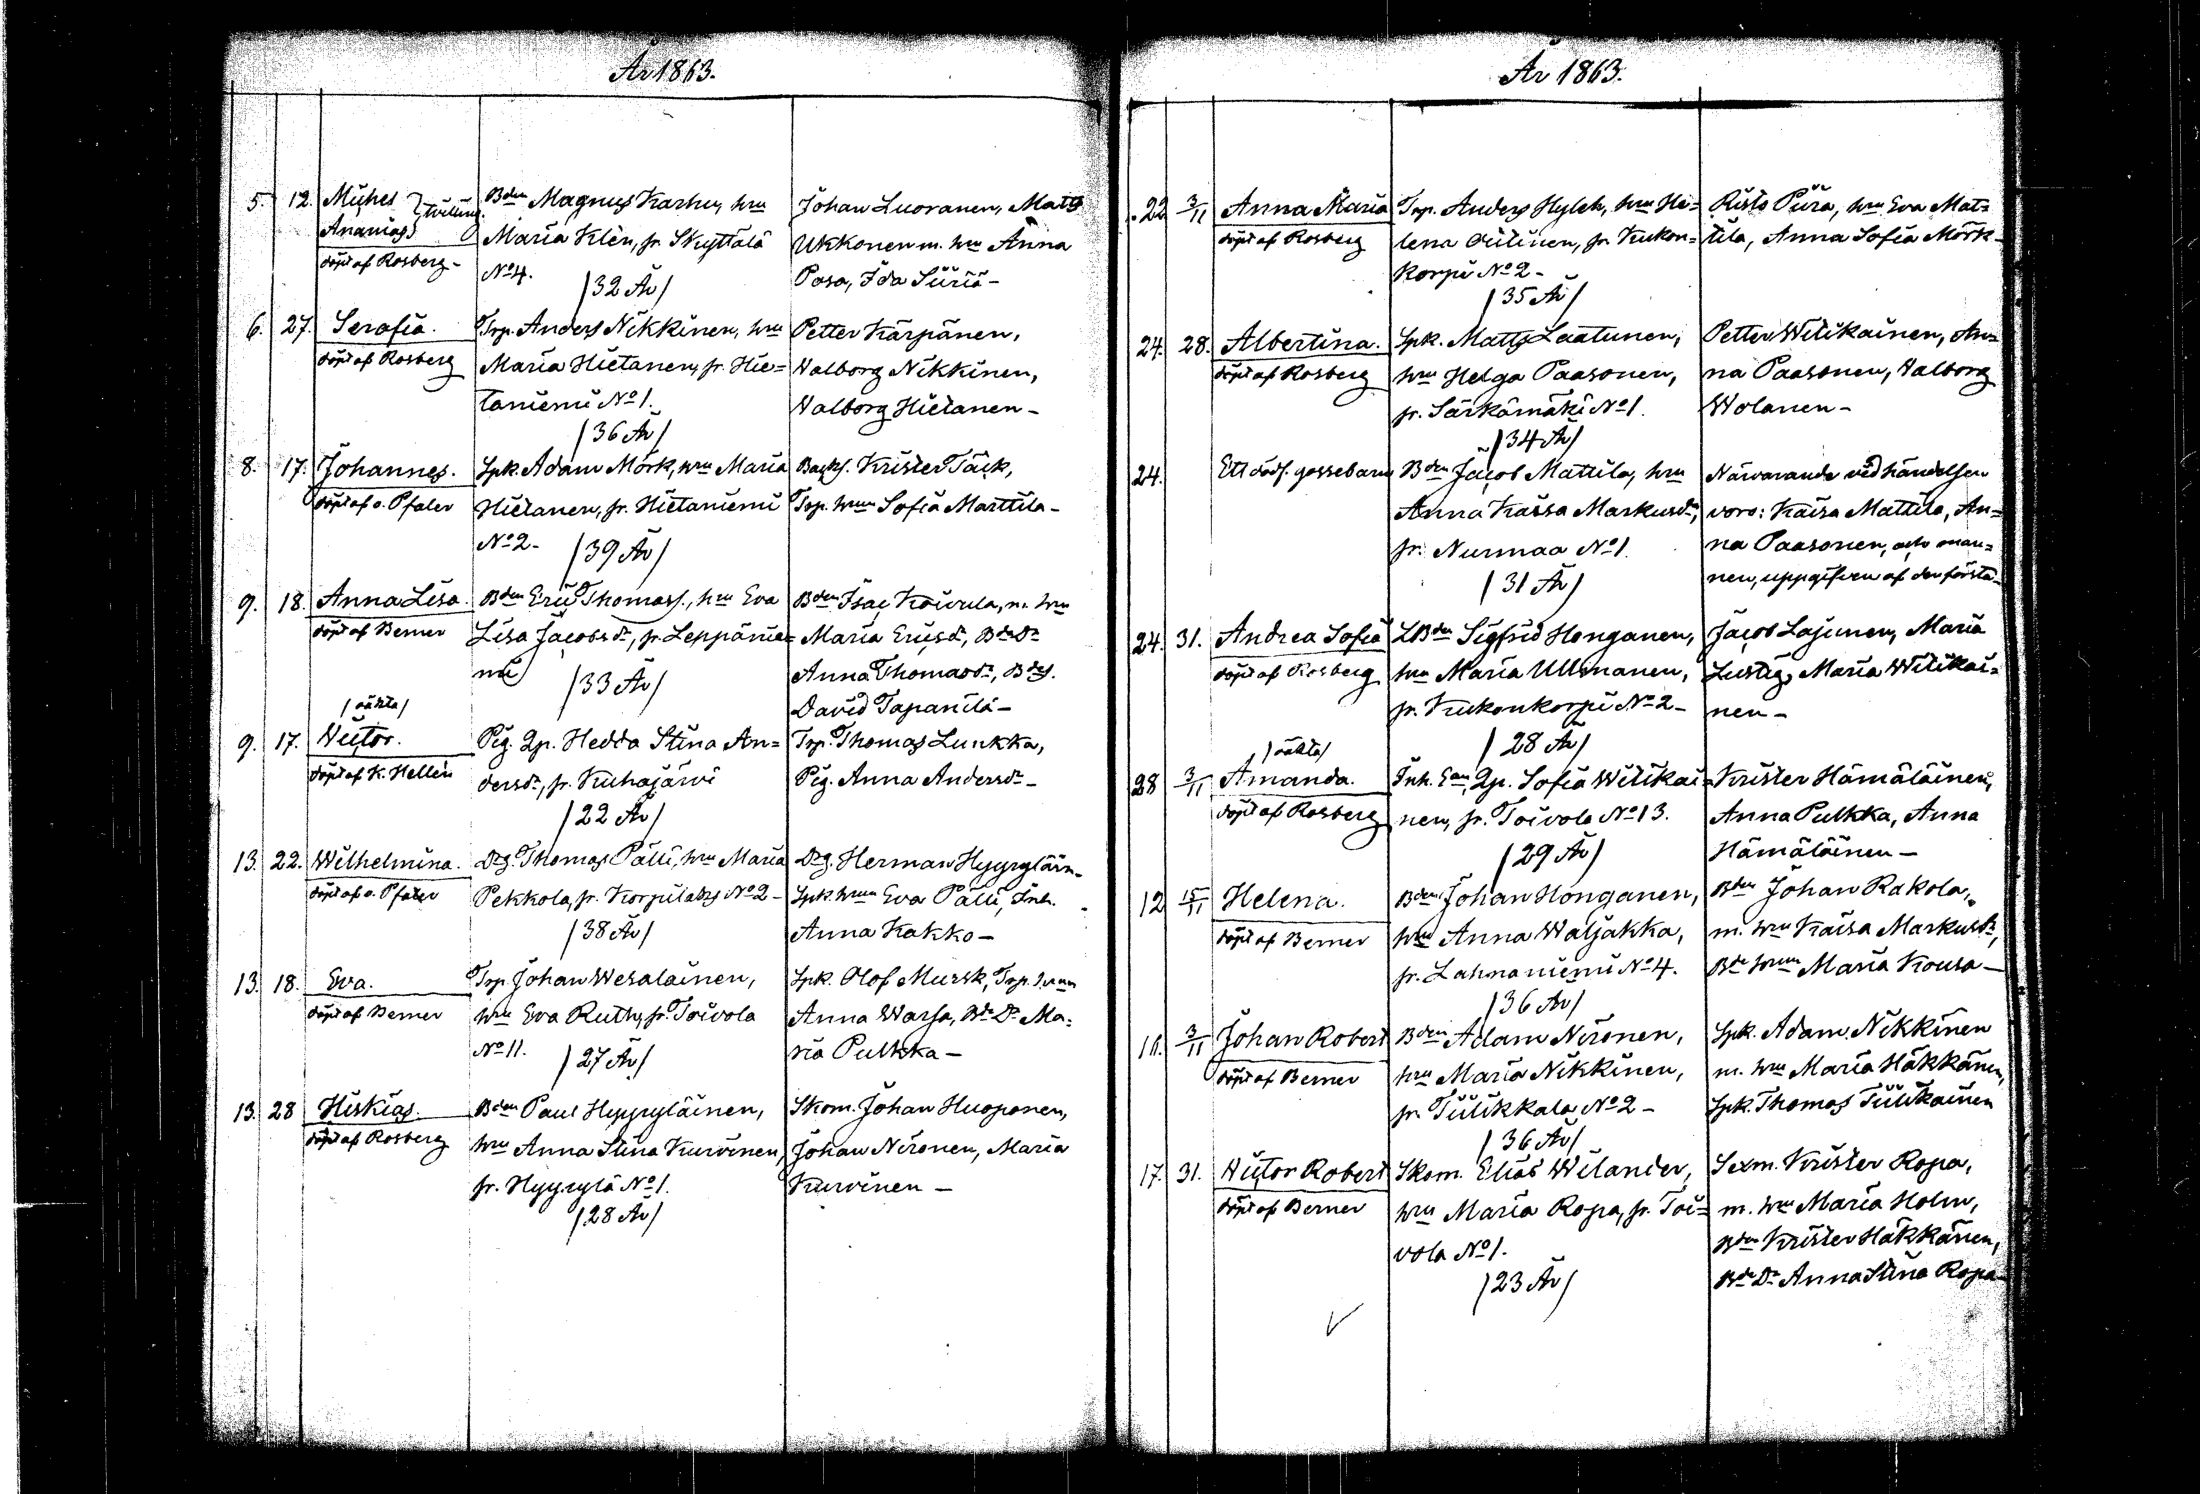 År 1863.
5. 12. Michel } tvilling.
Ananias
döpt af Rosberg -
Bden Magnus Karhu, hru
Maria Klèn, fr. Skyttälä
No 4.
/32 År/
Johan Luoranen, Matts
Ukkonen m. hru Anna
Pasa, Ida Süriä -
6. 27. Serafia.
döpt af Rosberg
Trp. Anders Nikkinen, hru
Maria Hietanen, fr. Hie=
taniemi No 1.
/36 År/
Petter Kärpänen,
Walborg Nikkinen,
Walborg Hietanen -
8. 17. Johannes.
döpt af v. Pfaler
Spk. Adam Mörk, hru Maria
Hietanen, fr. Hietaniemi
No 2 -
/39 År/
Backs. Krister Täck,
Trp. hrun Sofia Marttila -
9. 18. Anna Lisa.
döpt af Berner
Bden Eric Thomass., hru Eva
Lisa Jacobsdr, fr. Leppänie=
mi
/33 År/
Bden Isac Koivula, m. hru
Maria Ericsdr, Bde Dr
Anna Thomasdr, Bdes.
David Tapanila -
/oäkta/
9. 17. Victor.
döpt af K. Hellén
Pig. Qp. Hedda Stina An=
dersdr, fr. Kuhajärvi
/22 År/
Trp. Thomas Lunkka,
Pig. Anna Andersdr -
13. 22. Wilhelmina.
döpt af v. Pfaler
Drg. Thomas Pälli, hru Maria
Pekkola, fr. Korpilaks No 2 -
/38 År/
Drg. Herman Hyyryläin.
Spk. hrun Eva Pälli, Inh.
Anna Kakko -
13. 18. Eva.
döpt af Berner
Trp. Johan Wesalainen,
hru Eva Ruth, fr. Toivola
No 11.
/27 År/
Spk. Olof Mursk, Trp. hrun
Anna Warsa, Bde Dr Ma=
ria Pulkka -
13. 28 Hiskias.
döpt af Rosberg
Bden Paul Hyyryläinen,
hru Anna Stina Kurvinen,
fr. Hyyrylä No 1.
/28 År/
Skom. Johan Huoponen,
Johan Nironen, Maria
Kurvinen -
År 1863.
22 3/11 Anna Maria
döpt af Rosberg
Trp. Anders Hylch, hru He=
lena Outinen, fr. Kukon=
korpi No 2 -
/35 År/
Risto Püra, hru Eva Mat=
tila, Anna Sofia Mörk -
24. 28. Albertina.
döpt af Rosberg
Spk. Matts Laatunen,
hru Helga Paasonen,
fr. Särkämäki No 1.
/34 År/
Petter Wilikainen, An=
na Paasonen, Walborg
Wolanen -
24. Ett dödf. gossebarn
Bden Jacob Mattila, hru
Anna Kaisa Markusdr,
fr. Nurmaa No 1.
/31 År/
Närvarande vid händelsen
voro: Kaisa Mattila, An=
na Paasonen, och man=
nen, uppgifven af den första -
24. 31. Andrea Sofia
döpt af Rosberg
LBden Sigfrid Honganen,
hru Maria Ullmanen,
fr. Kukonkorpi No 2 -
/28 År/
Jacob Lajunen, Maria
Lustig, Maria Wilikai=
nen -
/oäkta/
28 3/11 Amanda.
döpt af Rosberg
Inh. Ean, Qp. Sofia Wilikai=
nen, fr. Toivola No 13.
/29 År/
Krister Hämäläinen,
Anna Pulkka, Anna
Hämäläinen -
12 15/11 Helena.
döpt af Berner
Bden Johan Honganen,
hru Anna Waljakka,
fr. Lahnaniemi No 4.
/36 År/
Bden Johan Rakola,
m. hru Kaisa Markusdr,
Bde hrun Maria Kousa -
16. 3/11 Johan Robert
döpt af Berner
Bden Adam Nironen,
hru Maria Nikkinen,
fr. Tiilikkala No 2 -
/36 År/
Spk. Adam Nikkinen
m. hru Maria Häkkänen,
Spk. Thomas Tiilikainen
17. 31. Victor Robert
döpt af Berner
Skom. Elias Wilander,
hru Maria Ropa, fr. Toi=
vola No 1.
/23 År/
Sexm. Krister Ropa,
m. hru Maria Holm,
Bden Krister Häkkänen,
Bde Dr Anna Stina Ropa -